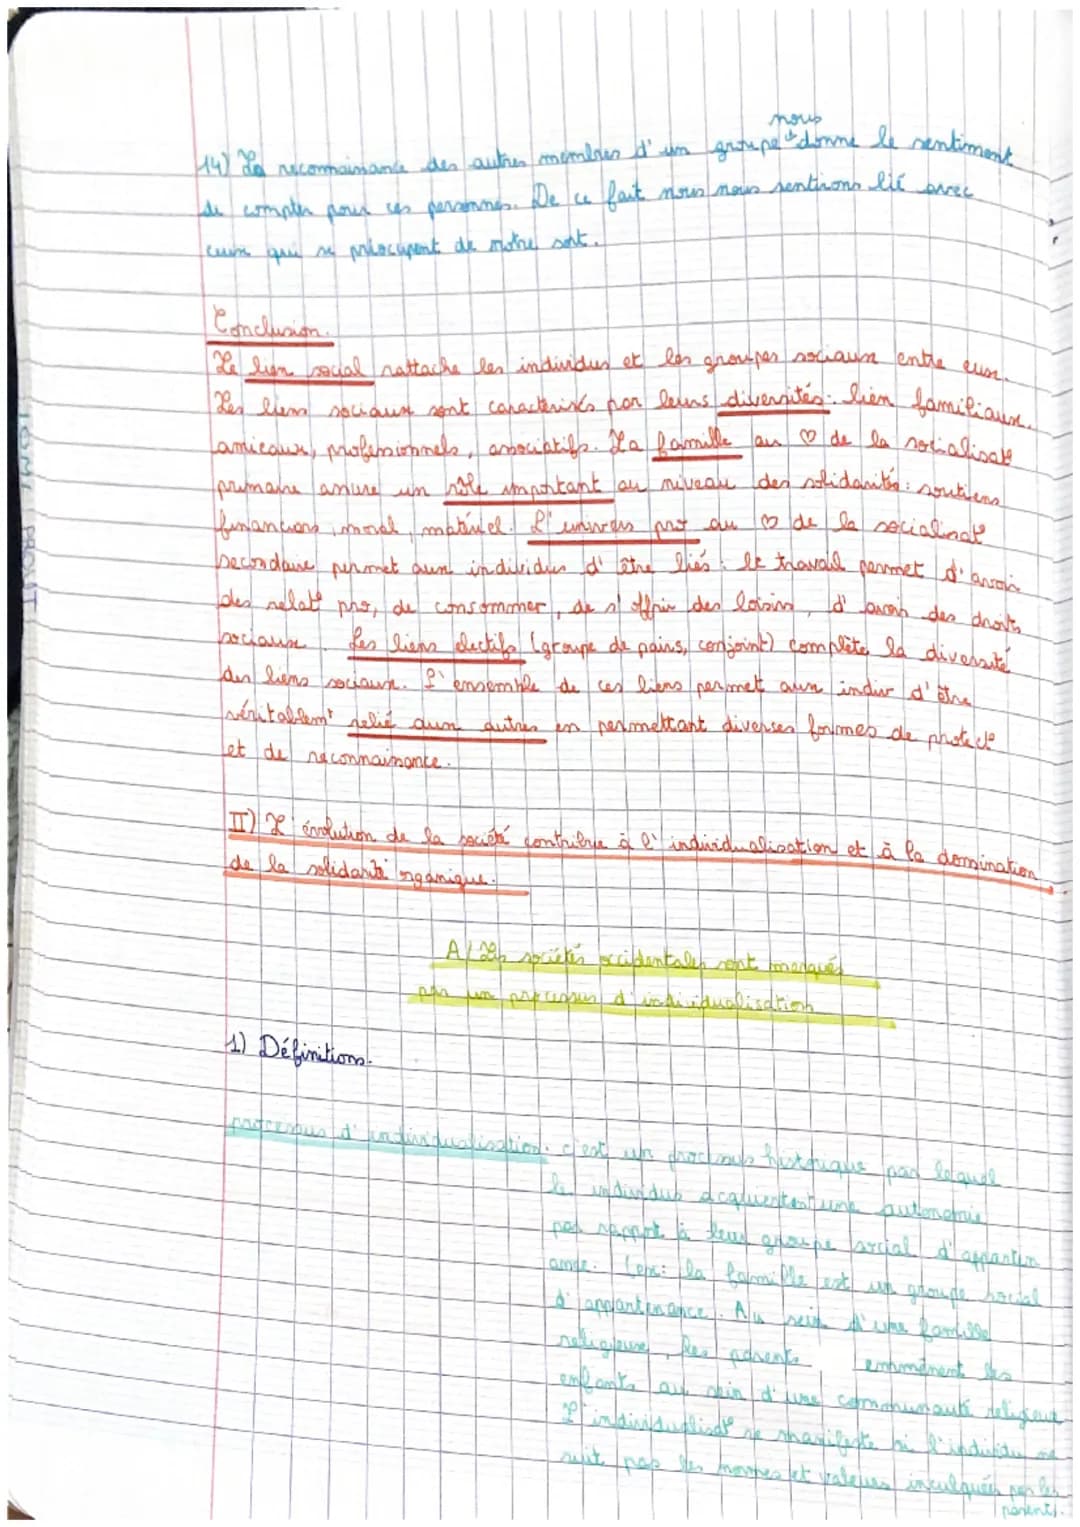 nous
14) La reconnaissance des autres membres d'un groupe donne le sentiment
de compter pour ces personnes. De ce fait nous nous sentirons lié avec
ceux qui se préocupent de notre sort.
Conclusion.
Le lien social rattache les individus et les groupes sociaux entre eux.
Les liens sociaux sont caractérisés par leurs diversités : lien familiaux,
amicaux, professionnels, associatifs. La famille au ♡ de la socialisat°
primaire assure un rôle important au niveau des solidarités : soutiens
financiers, moral, matériel. L'univers pro au ♡ de la socialisat°
secondaire permet aux individus d'être liés : le travail permet d'avoir
des relat° pro, de consommer, de s'offrir des loisirs, d'avoir des droits
sociaux. Les liens électifs (groupe de pairs, conjoint) complète la diversité
des liens sociaux. L'ensemble de ces liens permet aux indiv d'être
véritablemt relié aux autres en permettant diverses formes de protect°
et de reconnaissance.
II) L'évolution de la société contribue à l'individualisation et à la domination
de la solidarité organique.
A/ Les sociétés occidentales sont marqués
par un processus d'individualisation
1) Définitions.
processus d'individualisation : c'est un processus historique par lequel
le individus acquièrent une autonomie
par rapport à leur groupe social d'apparten
ance. (ex: la famille est un groupe social
d'appartenance. Au sein d'une famille
religieuse, les parents emmènent les
enfants au sein d'une communauté religieuse
L'individualisat° se manifeste si l'individu ne
suit pas les normes et valeurs inculquées par les
parents.